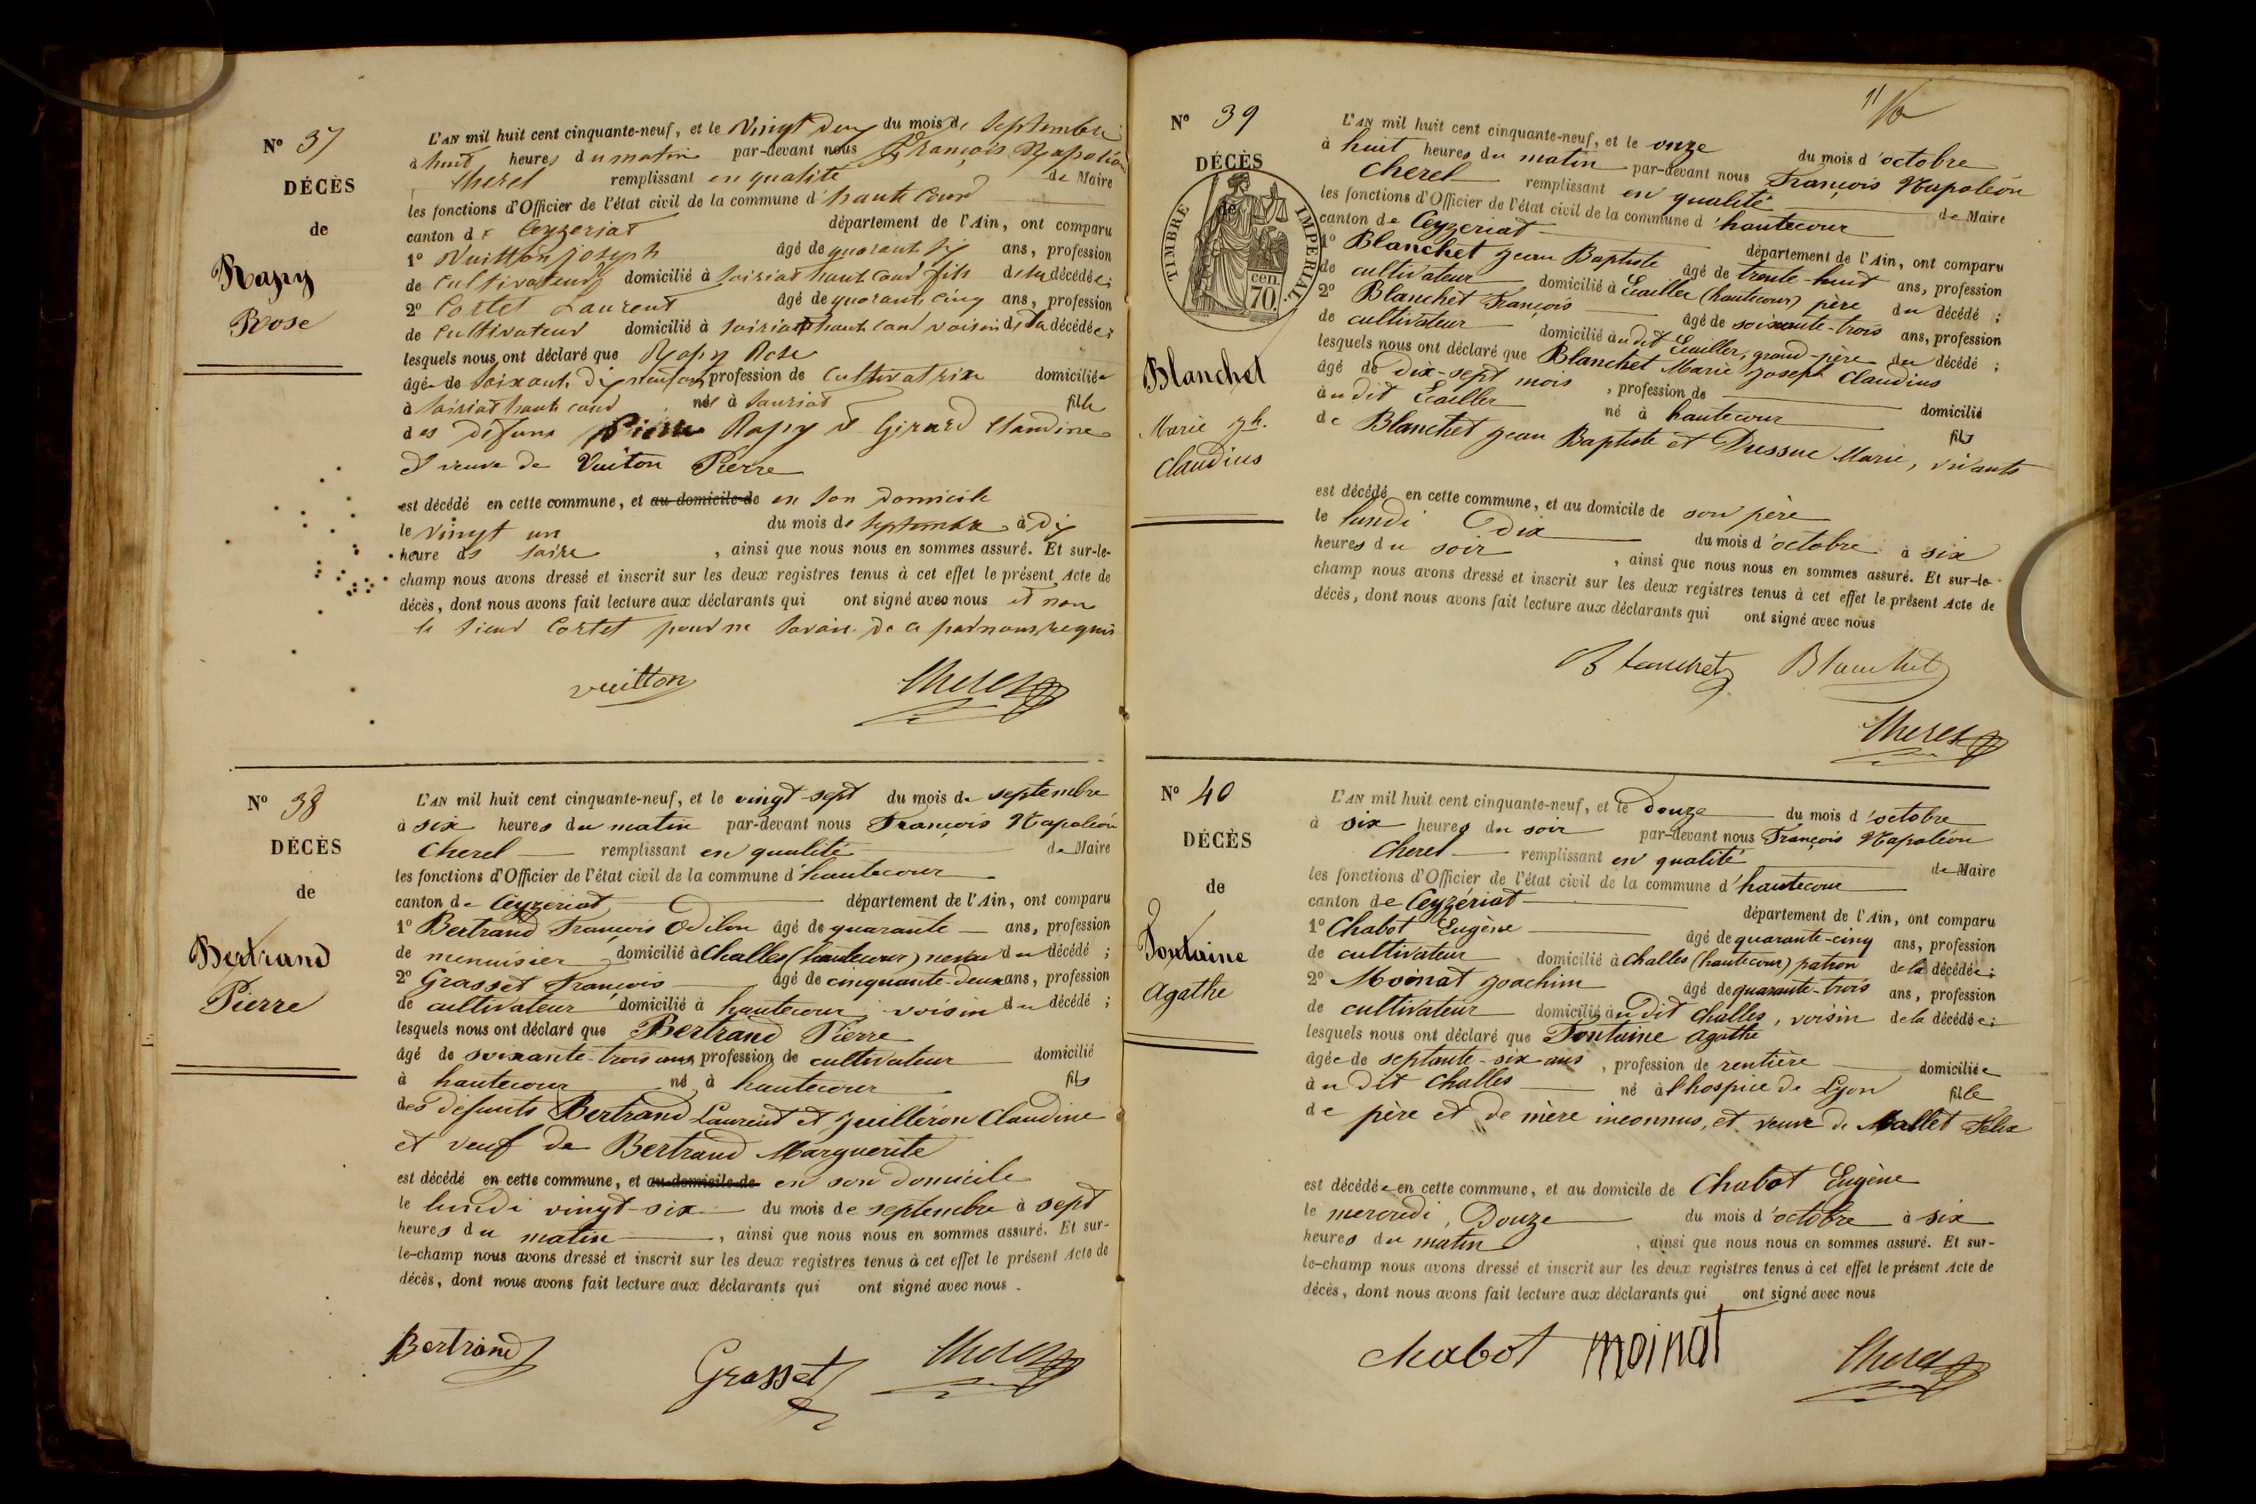 Nº 37
DÉCÈS
de
Rapy
Rose
L'AN mil huit cent cinquante-neuf, et le Vingt deux du mois de Septembre
à huit heures du matin par-devant nous François Napoléon
Cherel remplissant en qualité de Maire
les fonctions d'Officier de l'état civil de la commune d'haute Cour
canton de Ceyzeriat département de l'Ain, ont comparu
1º Vuitton joseph âgé de quarant six ans, profession
de Cultivateur domicilié à Soiriat haute cour fils de la décédée;
2º Cortet Laurent âgé de quorante cinq ans, profession
de Cultivateur domicilié à Soiriat haute cour voisin de la décédée;
lesquels nous ont déclaré que Rapy Rose
âgée de Soixante Dix neuf ans profession de Cultivatrixe domiciliée
à Soiriat haute cour né à fille
des défunt Pierre Rapy et Girard Claudine
et veuve de Vuiton Pierre
est décédé en cette commune, et au domicile de en son domicile
le vingt un du mois de Septembre à dix
heure du soire, ainsi que nous nous en sommes assuré. Et sur-le-
champ nous avons dressé et inscrit sur les deux registres tenus à cet effet le présent Acte de
décès, dont nous avons fait lecture aux déclarants qui ont signé avec nous et non
le Sieur Cortet pour ne Savoir de ce par nous requis
vuitton Cherel
Nº 38
DÉCÈS
de
Bertrand
Pierre
L'AN mil huit cent cinquante-neuf, et le vingt-sept du mois de septembre
à six heures du matin par-devant nous François Napoléon
Cherel remplissant en qualité de Maire
les fonctions d'Officier de l'état civil de la commune d'hautecour
canton de Ceyzeriat département de l'Ain, ont comparu
1º Bertrand François Odilon âgé de quarante ans, profession
de menuisier domicilié à Challes (hautecour) neveu du décédé;
2º Grasset François âgé de cinquante-deux ans, profession
de cultivateur domicilié à hautecour, voisin du décédé;
lesquels nous ont déclaré que Bertrand Pierre
âgé de soixante-trois ans profession de cultivateur domicilié
à hautecour né à hautecour fils
des défunts Bertrand Laurent et Juilleron Claudine
et veuf de Bertrand Marguerite
est décédé en cette commune, et au domicile de en son domicile
le lundi vingt-six du mois de septembre à sept
heures du matin, ainsi que nous nous en sommes assuré. Et sur-
le-champ nous avons dressé et inscrit sur les deux registres tenus à cet effet le présent Acte de
décès, dont nous avons fait lecture aux déclarants qui ont signé avec nous.
Bertrand Grasset Cherel
Nº 39
DÉCÈS
de
TIMBRE IMPÉRIAL.
cen.
70.
Blanchet
Marie Jh.
Claudius
L'AN mil huit cent cinquante-neuf, et le onze du mois d'octobre
à huit heures du matin par-devant nous François Napoléon
Cherel remplissant en qualité de Maire
les fonctions d'Officier de l'état civil de la commune d'hautecour
canton de Ceyzeriat département de l'Ain, ont comparu
1º Blanchet Jean Baptiste âgé de trente-huit ans, profession
de cultivateur domicilié à Ecailler (hautecour) père du décédé;
2º Blanchet François âgé de soixante-trois ans, profession
de cultivateur domicilié au dit Ecailler, grand-père du décédé;
lesquels nous ont déclaré que Blanchet Marie Joseph Claudius
âgé de dix-sept mois, profession de domicilié
au dit Ecailler né à hautecour fils
de Blanchet Jean Baptiste et Dussuc Marie, vivants
est décédé en cette commune, et au domicile de son père
le lundi Dix du mois d'octobre à six
heures du soir, ainsi que nous nous en sommes assuré. Et sur-le-
champ nous avons dressé et inscrit sur les deux registres tenus à cet effet le présent Acte de
décès, dont nous avons fait lecture aux déclarants qui ont signé avec nous
Blanchet Blanchet
Cherel
Nº 40
DÉCÈS
de
Fontaine
Agathe
L'AN mil huit cent cinquante-neuf, et le douze du mois d'octobre
à six heures du soir par-devant nous François Napoléon
Cherel remplissant en qualité de Maire
les fonctions d'Officier de l'état civil de la commune d'hautecour
canton de Ceyzériat département de l'Ain, ont comparu
1º Chabot Eugène âgé de quarante-cinq ans, profession
de cultivateur domicilié à Challes (hautecour) patron de la décédée;
2º Moinat Joachim âgé de quarante-trois ans, profession
de cultivateur domicilié au dit Challes, voisin de la décédée;
lesquels nous ont déclaré que Fontaine Agathe
âgée de septante-six ans, profession de rentière domiciliée
au dit Challes né à l'hospice de Lyon fille
de père et de mère inconnus, et veuve de Mallet Félix
est décédée en cette commune, et au domicile de Chabot Eugène
le mercredi, Douze du mois d'octobre à six
heures du matin, ainsi que nous nous en sommes assuré. Et sur-
le-champ nous avons dressé et inscrit sur les deux registres tenus à cet effet le présent Acte de
décès, dont nous avons fait lecture aux déclarants qui ont signé avec nous
Chabot moinat Cherel